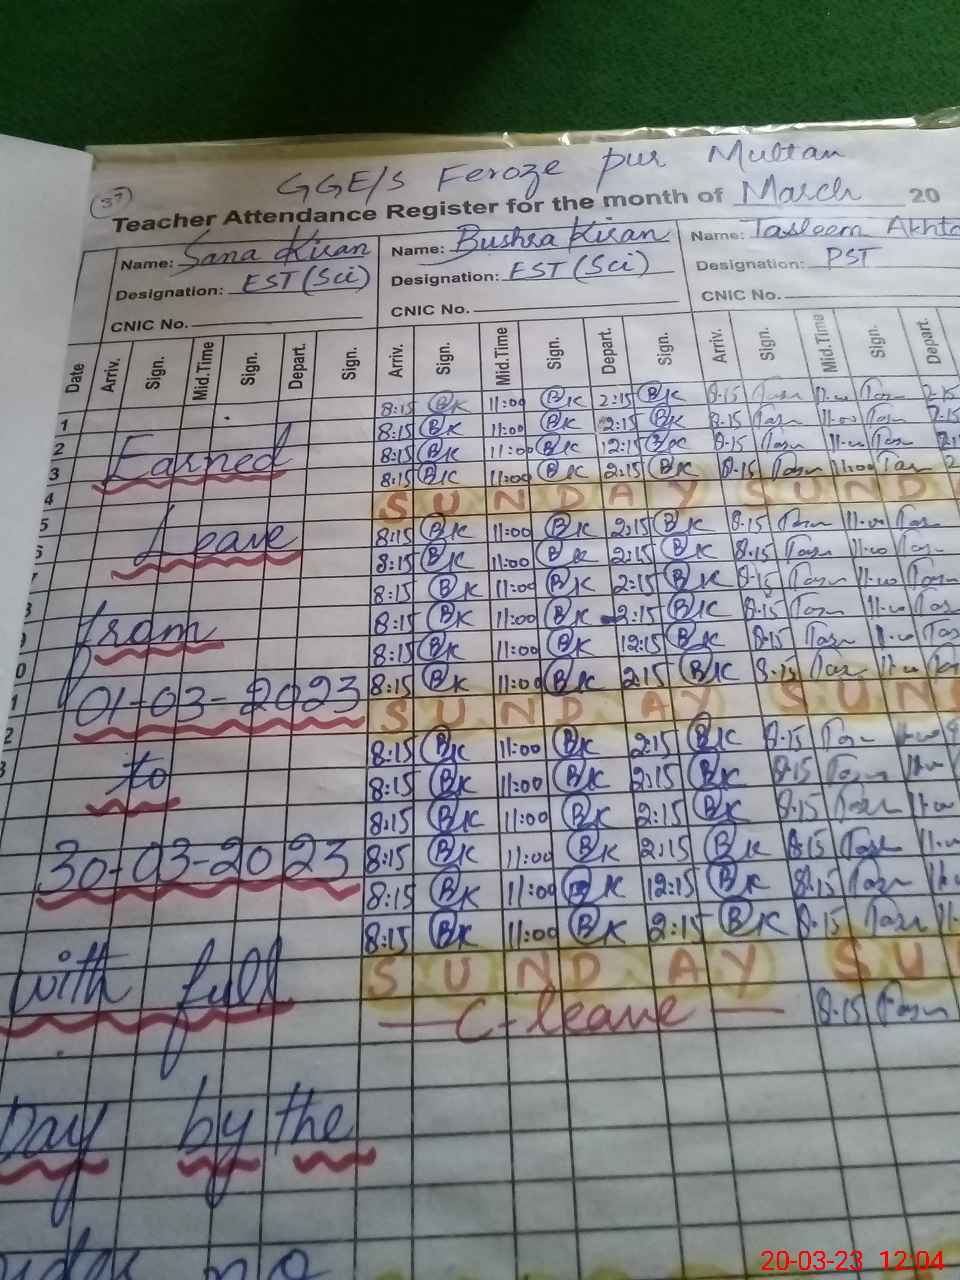 37
GGE/S Feroze pur Multan
Teacher Attendance Register for the month of March 20
Name: Sana Kiran Name: Bushra Kiran Name: Tasleem Akhta
Designation: EST (Sci) Designation: EST (Sci) Designation: PST
CNIC No. CNIC No. CNIC No.
Date Arriv. Sign. Mid.Time Sign. Depart. Sign. Arriv. Sign. Mid.Time Sign. Depart. Sign. Arriv. Sign. Mid.Time Sign. Depart.
8:15 BK 11:00 BK 2:15 BK 8:15 11:00 2:15
1 8:15 BK 11:00 BK 2:15 BK 8:15 11:00 2:15
2 8:15 BK 11:00 BK 12:15 BK 8:15 11:00
3 Earned 8:15 BK 11:00 BK 2:15 BK 8:15 11:00 2
4 SUNDAY SUND
5 8:15 BK 11:00 BK 2:15 BK 8:15 11:00
Leave 8:15 BK 11:00 BK 2:15 BK 8:15 11:00
8:15 BK 11:00 BK 2:15 BK 8:15 11:00
from 8:15 BK 11:00 BK 2:15 BK 8:15 11:00
8:15 BK 11:00 BK 12:15 BK 8:15 11:00
0 8:15 BK 11:00 BK 2:15 BK 8:15 11:00
1 01-03-2023 SUNDAY SUN
2 8:15 BK 11:00 BK 2:15 BK 8:15
3 to 8:15 BK 11:00 BK 2:15 BK 8:15
8:15 BK 11:00 BK 2:15 BK 8:15
30-03-2023 8:15 BK 11:00 BK 2:15 BK 8:15
8:15 BK 11:00 BK 12:15 BK 8:15
8:15 BK 11:00 BK 2:15 BK 8:15
with full SUNDAY SU
C-leave 8:15
Day by the
no
20-03-23 12:04